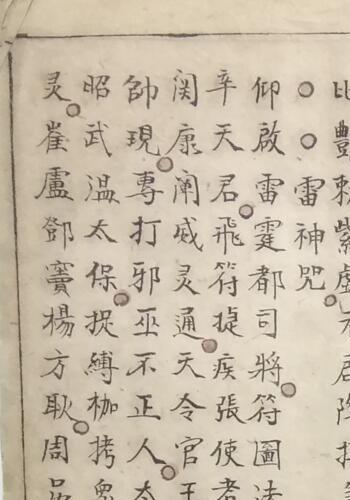 比豔賴紫虛元君降
○○雷神咒
仰啟雷霆都司將符圖法
辛天君飛符捉疾張使者
関康阐威灵通天令官王
帥現專打邪巫不正人太
昭武温太保捉縛枷拷鬼
灵崔盧鄧竇楊方耿周呂